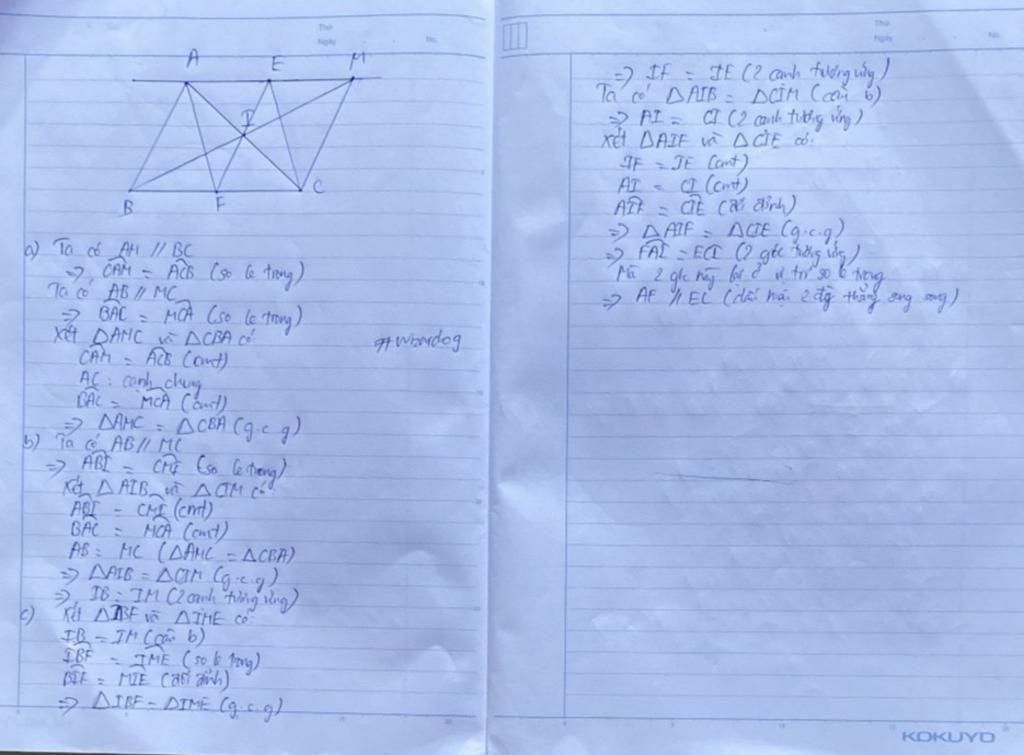 Thứ
Ngày
No.
A E M
I
B F C
a) Ta có AM // BC
=> CAM = ACB (so le trong)
Ta có AB // MC
=> BAC = MCA (so le trong)
Xét ΔAMC và ΔCBA có
CAM = ACB (cmt)
AC : cạnh chung
BAC = MCA (cmt)
=> ΔAMC = ΔCBA (g.c.g)
b) Ta có AB // MC
=> ABI = CMI (so le trong)
Xét ΔAIB và ΔCIM có
ABI = CMI (cmt)
BAC = MCA (cmt)
AB = MC (ΔAMC = ΔCBA)
=> ΔAIB = ΔCIM (g.c.g)
=> IB = IM (2 cạnh tương ứng)
c) Xét ΔIBF và ΔIME có:
IB = IM (câu b)
IBF = IME (so le trong)
BIF = MIE (đối đỉnh)
=> ΔIBF = ΔIME (g.c.g)
Thứ
Ngày
No.
=> IF = IE (2 cạnh tương ứng)
Ta có ΔAIB = ΔCIM (câu b)
=> AI = CI (2 cạnh tương ứng)
Xét ΔAIF và ΔCIE có:
IF = IE (cmt)
AI = CI (cmt)
AIF = CIE (đối đỉnh)
=> ΔAIF = ΔCIE (g.c.g)
=> FAI = ECI (2 góc tương ứng)
Mà 2 góc này lại ở vị trí so le trong
=> AF // EC (dấu hiệu 2 đg thẳng song song)
KOKUYO